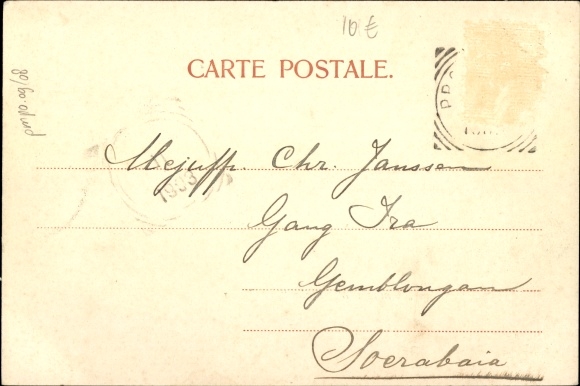 10 €
CARTE POSTALE.
PRO
1903
Mejuffr. Chr. Janssen
Gang Tra
Gemblongan
Soerabaia